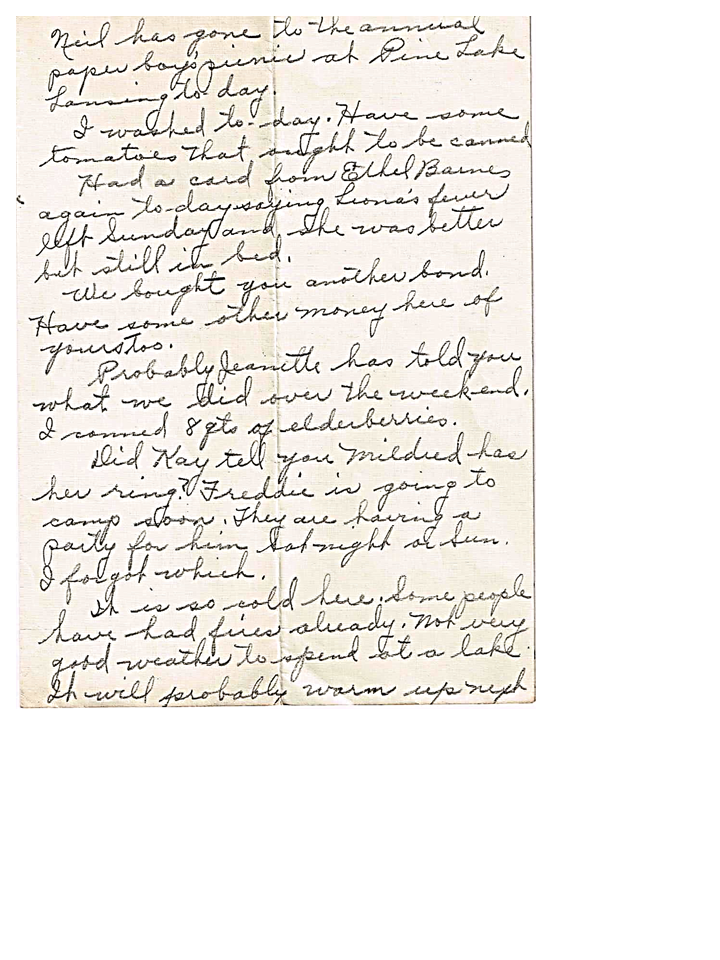 Neil has gone to the annual
paper boy's picnic at Pine Lake
Lansing to-day.
I washed to-day. Have some
tomatoes that ought to be canned
Had a card from Ethel Barnes
again to-day saying Liona's fever
left Sunday and she was better
but still in bed.
We bought you another bond.
Have some other money here of
yours too.
Probably Jeanette has told you
what we did over the week-end.
I canned 8 qts of elderberries.
Did Kay tell you Mildred has
her ring? Freddie is going to
camp soon. They are having a
party for him Sat night or Sun.
I forgot which.
It is so cold here. Some people
have had fires already. Not very
good weather to spend at a lake.
It will probably warm up next